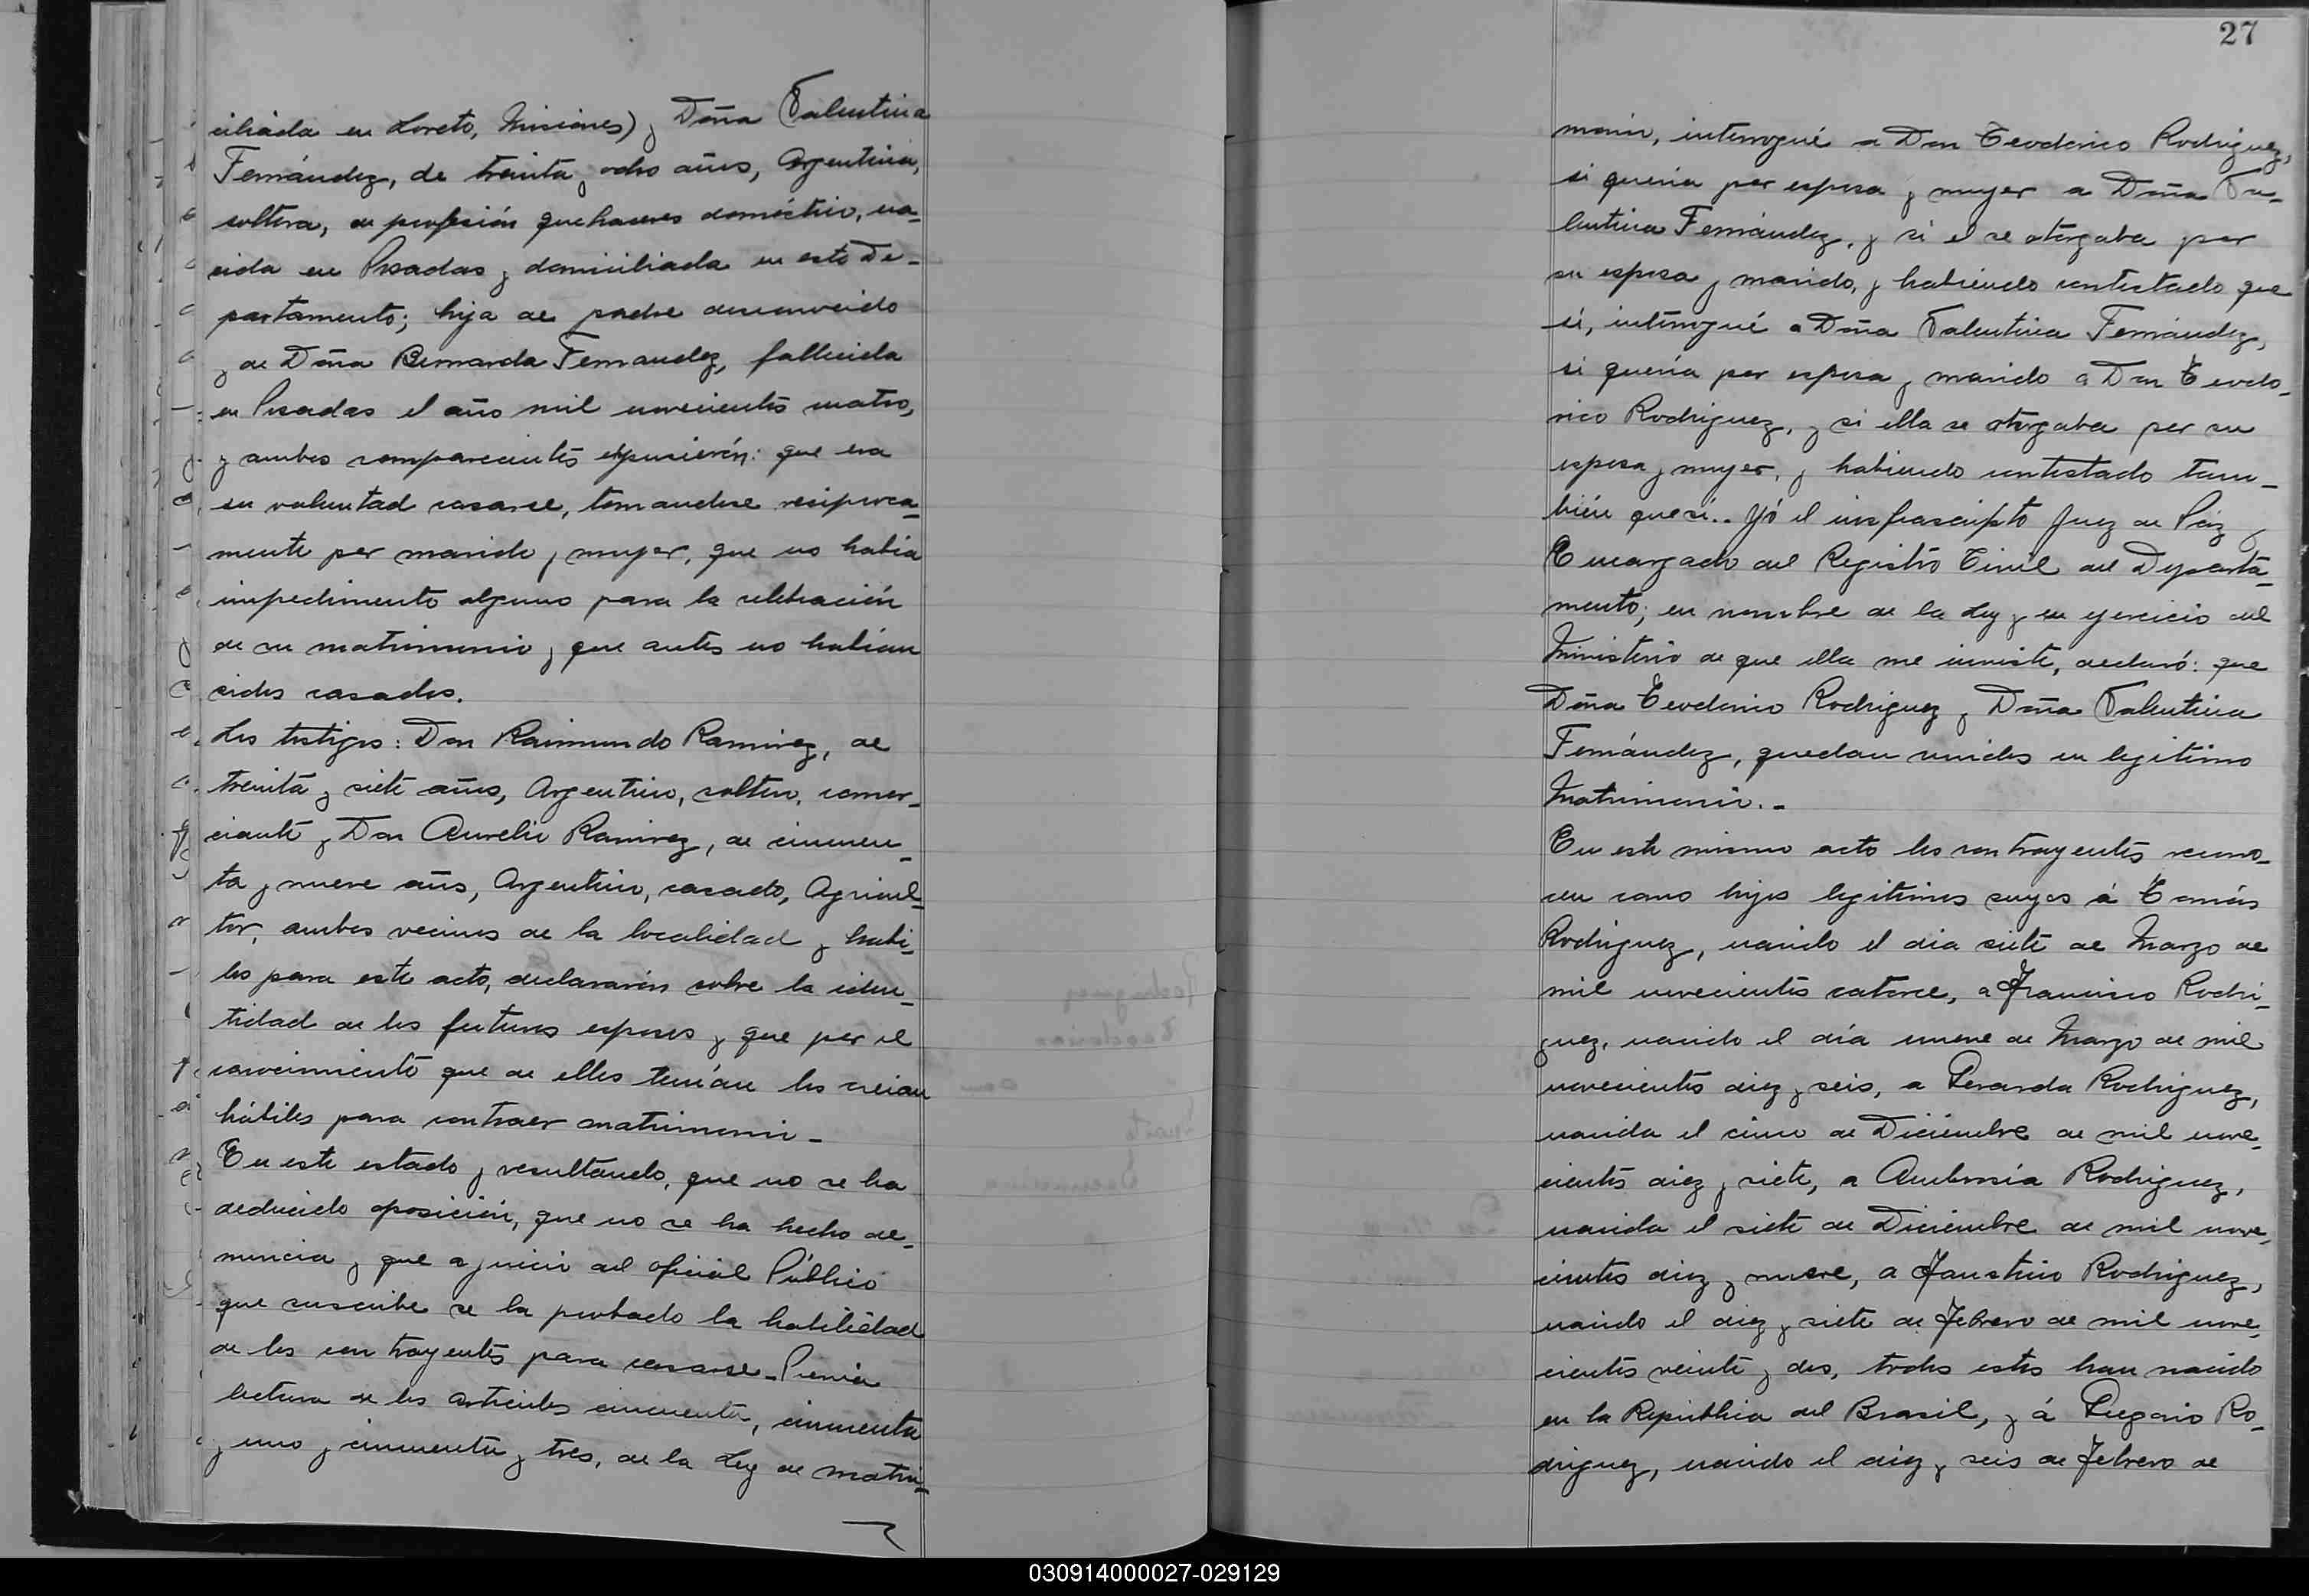 ciliada en Loreto, Misiones) y Doña Valentina
Fernández, de treinta y ocho años, Argentina,
soltera, de profesión quehaceres doméstico, na-
cida en Posadas y domiciliada en este De-
partamento; hija de padre desconocido
y de Doña Bernarda Fernandez, fallecida
en Posadas el año mil novecientos cuatro,
y ambos comparecientes expusierón: que era
su voluntad casarse, tomandose reciproca-
mente por marido y mujer, que no había
impedimento alguno para la celebración
de su matrimonio y que antes no habían
sidos casados.
Los testigos: Don Raimundo Ramirez, de
treinta y siete años, Argentino, soltero, comer-
ciante y Don Aurelio Ramirez, de cincuen-
ta y nueve años, Argentino, casado, Agricul-
tor, ambos vecinos de la localidad y habi-
les para este acto, declararón sobre la iden-
tidad de los futuros esposos y que por el
conocimiento que de ellos tenían los creian
hábiles para contraer matrimonio-
En este estado y resultando, que no se ha
deducido oposición, que no se ha hecho de-
nuncia y que a juicio del oficial Público
que suscribe se ha probado la habilidad
de los contrayentes para casarse-Previa
lectura de los articulos cincuenta, cincuenta
y uno y cincuenta y tres, de la Ley de matri-
27
monio, interrogué a Don Teodorico Rodriguez,
si queria por esposa y mujer a Doña Va-
lentina Fernández, y si el se otorgaba por
su esposo y marido, y habiendo contestado que
sí, interrogué a Doña Valentina Fernández,
si quería por esposo y marido a Don Teodo-
rico Rodriguez, y si ella se otorgaba por su
esposa y mujer, y habiendo contestado tam-
bién que sí.. Yó el infrascripto Juez de Páz y
Encargado del Registro Civil del Departa-
mento; en nombre de la Ley y en ejercicio del
Ministerio de que ella me inviste, declaró: que
Doña Teodorico Rodriguez y Doña Valentina
Fernández, quedan unidos en legitimo
Matrimonio.-
En este mismo acto los contrayentes recono-
cen como hijos legitimos suyos á Tomás
Rodriguez, nacido el dia siete de Marzo de
mil novecientos catorce, a Francisco Rodri-
guez, nacido el día nueve de Marzo de mil
novecientos diez y seis, a Rodriguez,
nacida el cinco de Diciembre de mil nove-
cientos diez y siete, a Ambrosia Rodriguez,
nacida el siete de Diciembre de mil nove-
cientos diez y nueve, a Faustino Rodriguez,
nacido el diez y siete de Febrero de mil nove-
cientos veinte y dos, todos estos han nacido
en la República del Brasil, y á Ro-
driguez, nacido el diez y seis de Febrero de
030914000027-029129